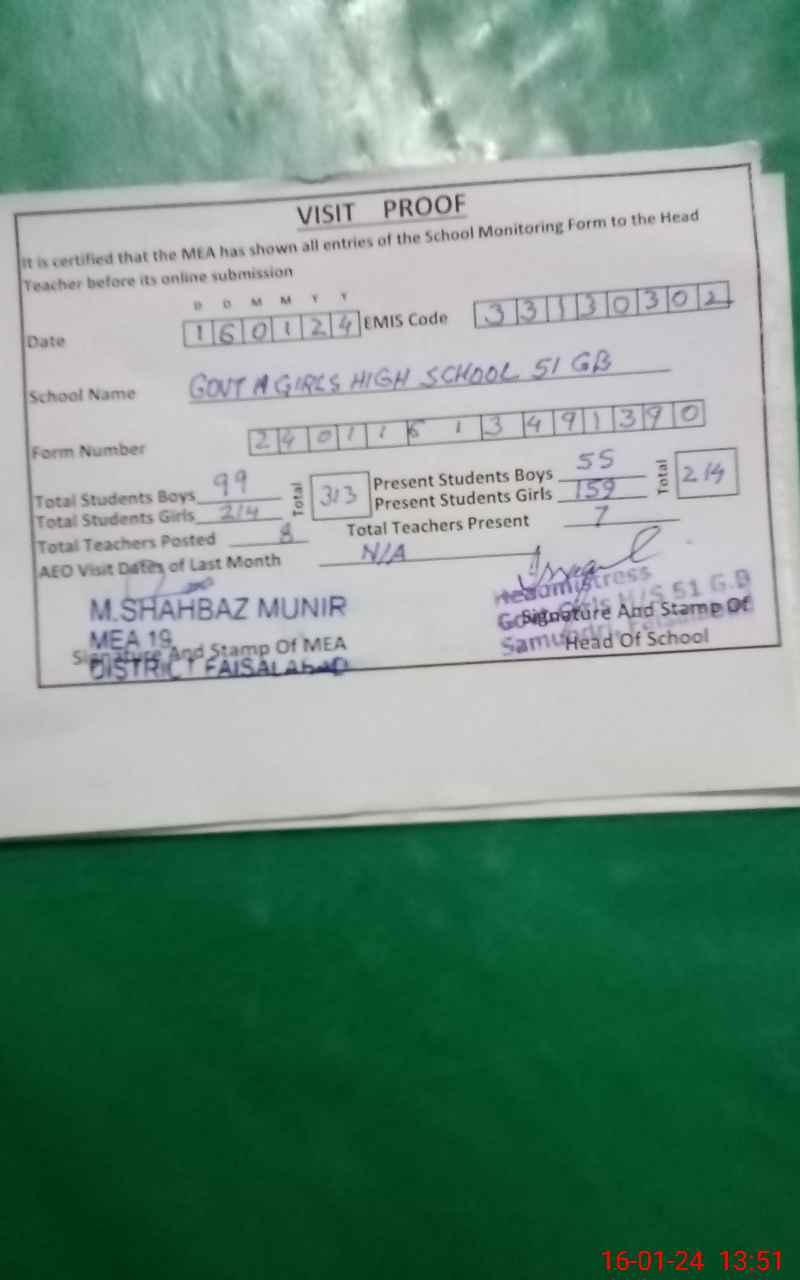 VISIT PROOF
It is certified that the MEA has shown all entries of the School Monitoring Form to the Head
Teacher before its online submission
D D M M Y Y
Date 160124 EMIS Code 33130302
School Name GOVT M GIRLS HIGH SCHOOL 51 GB
Form Number 24011613491390
Total Students Boys 99 Total 313 Present Students Boys 55 Total 214
Total Students Girls 214 Present Students Girls 159
Total Teachers Posted 8 Total Teachers Present 7
AEO Visit Dates of Last Month N/A
M.SHAHBAZ MUNIR
MEA 19
DISTRICT FAISALABAD
Signature And Stamp Of MEA
Headmistress
Govt Girls H/S 51 G.B
Samundri Faisalabad
Signature And Stamp Of
Head Of School
16-01-24 13:51